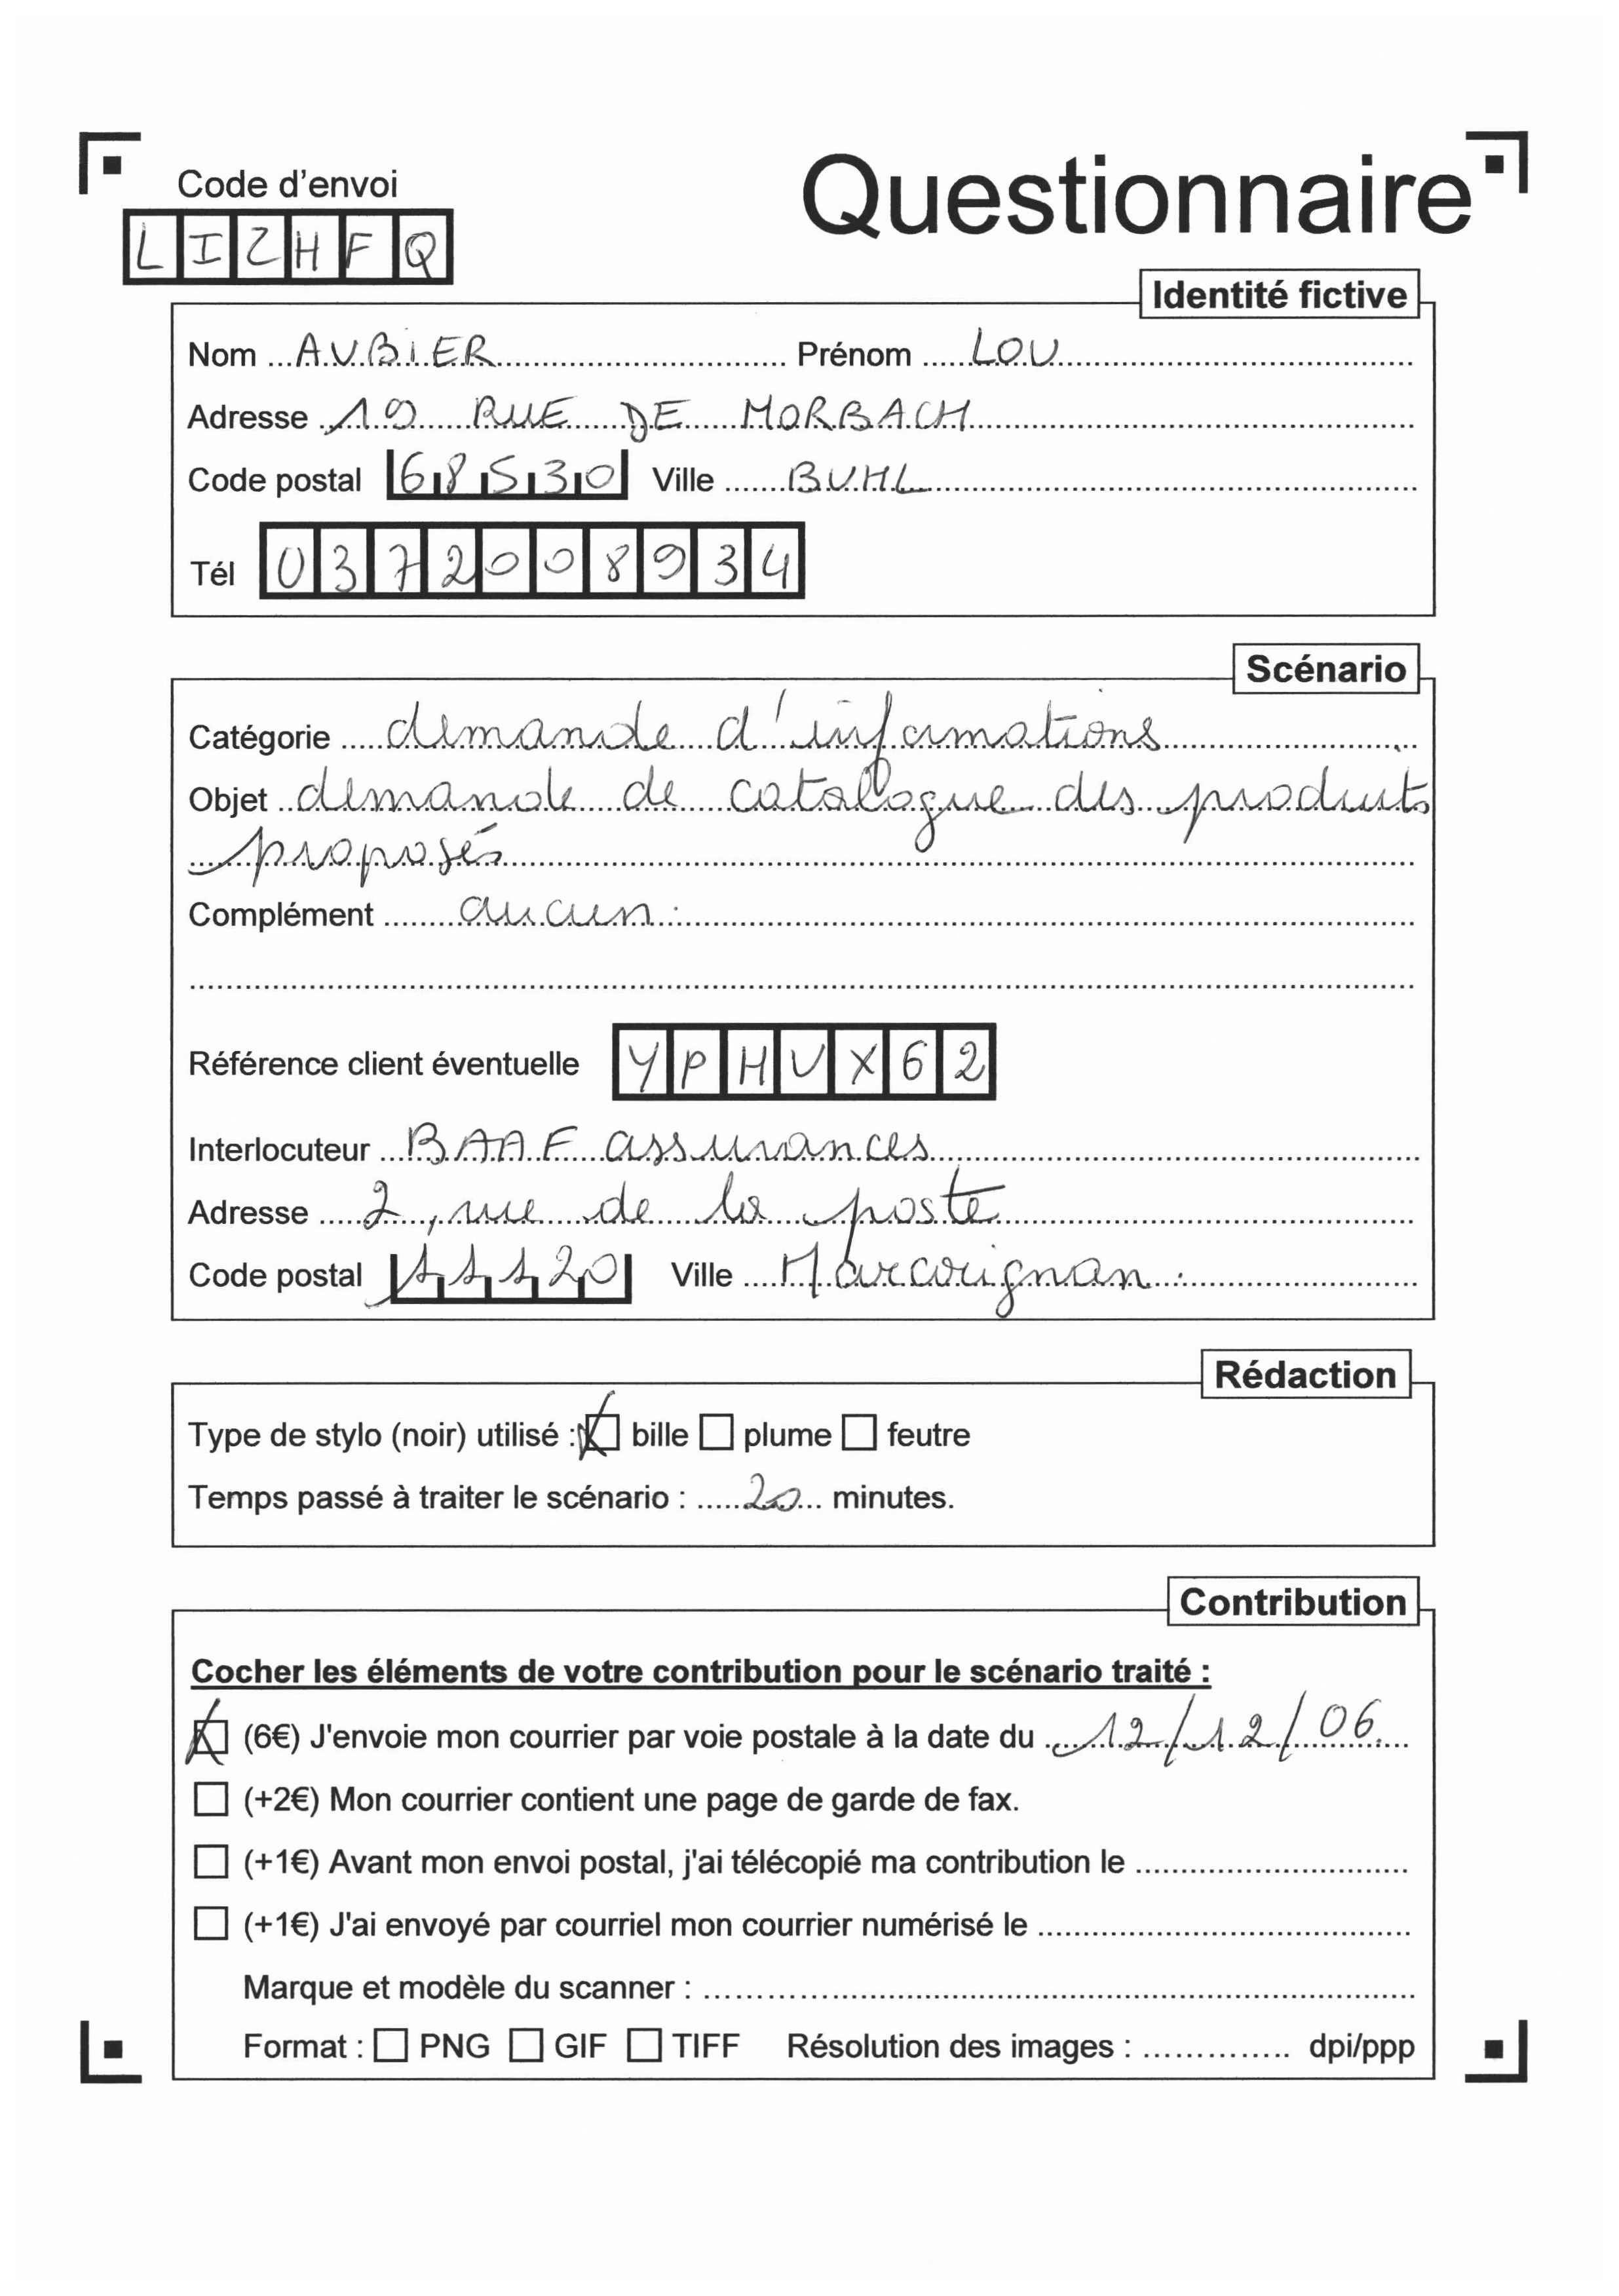 Code d'envoi
Questionnaire
LIZHFQ
Identité fictive
Nom AUBIER Prénom LOU
Adresse 19 RUE DE MORBACH
Code postal 68530 Ville BUHL
Tél 0372008934
Scénario
Catégorie demande d'informations
Objet demande de catalogue des produits
proposés
Complément aucun.
Référence client éventuelle YPHUX62
Interlocuteur BAAF assurances
Adresse 2, rue de la poste
Code postal 11120 Ville Marcorignan.
Rédaction
Type de stylo (noir) utilisé : bille plume feutre
Temps passé à traiter le scénario : 20 minutes.
Contribution
Cocher les éléments de votre contribution pour le scénario traité :
(6€) J'envoie mon courrier par voie postale à la date du 12/12/06.
(+2€) Mon courrier contient une page de garde de fax.
(+1€) Avant mon envoi postal, j'ai télécopié ma contribution le
(+1€) J'ai envoyé par courriel mon courrier numérisé le
Marque et modèle du scanner :
Format : PNG GIF TIFF Résolution des images : dpi/ppp